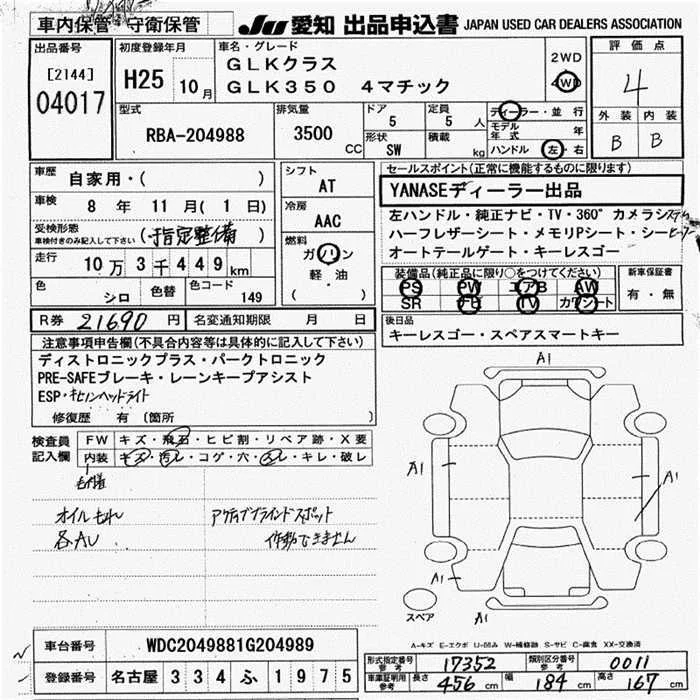 車内保管 守衛保管 JU 愛知 出品申込書 JAPAN USED CAR DEALERS ASSOCIATION
出品番号 [2144] 04017
初度登録年月 H25 10月
車名・グレード GLKクラス
GLK350 4マチック
2WD 4WD
評価点 4
外装 内装
B B
型式 RBA-204988
排気量 3500 CC
ドア 5 定員 5人
形状 SW 積載 kg
ディーラー・並行
モデル年式 年
ハンドル 左・右
車歴 自家用・( )
車検 8年 11月( 1日)
受検形態 車検付きのみ記入して下さい (指定整備)
走行 10万3千449km
色 シロ 色替 色コード 149
シフト AT
冷房 AAC
燃料 ガソリン
軽・油
( )
セールスポイント(正常に機能するものに限ります)
YANASEディーラー出品
左ハンドル・純正ナビ・TV・360°カメラ
ハーフレザーシート・メモリPシート・シー
オートテールゲート・キーレスゴー
装備品(純正品に限り○をつけてください)
PS PW エアB AW
SR TV カワシート
新車保証書
有・無
R券 21690円 名変通知期限 月 日
後日品
キーレスゴー・スペアスマートキー
注意事項申告欄(不具合内容等は具体的に記入して下さい)
ディストロニックプラス・パークトロニック
PRE-SAFEブレーキ・レーンキープアシスト
ESP・キセノンヘッドライト
修復歴 有 (箇所 )
検査員記入欄 FW キズ・飛石・ヒビ割・リペア跡・X要
内装 キズ・汚レ・コゲ・穴・スレ・キレ・破レ
オイルもれ アクティブブラインドスポット
各AU 作動できません
A1
A1 A1
A1 A1
スペア
A-キズ E-エクボ U-凹み W-補修跡 S-サビ C-腐食 XX-交換済
車台番号 WDC2049881G204989
登録番号 名古屋 334 ふ 1975
形式指定番号 参考 17352 類別区分番号 参考 0011
車庫証明用 参考 長さ 456cm 幅 184cm 高さ 167cm